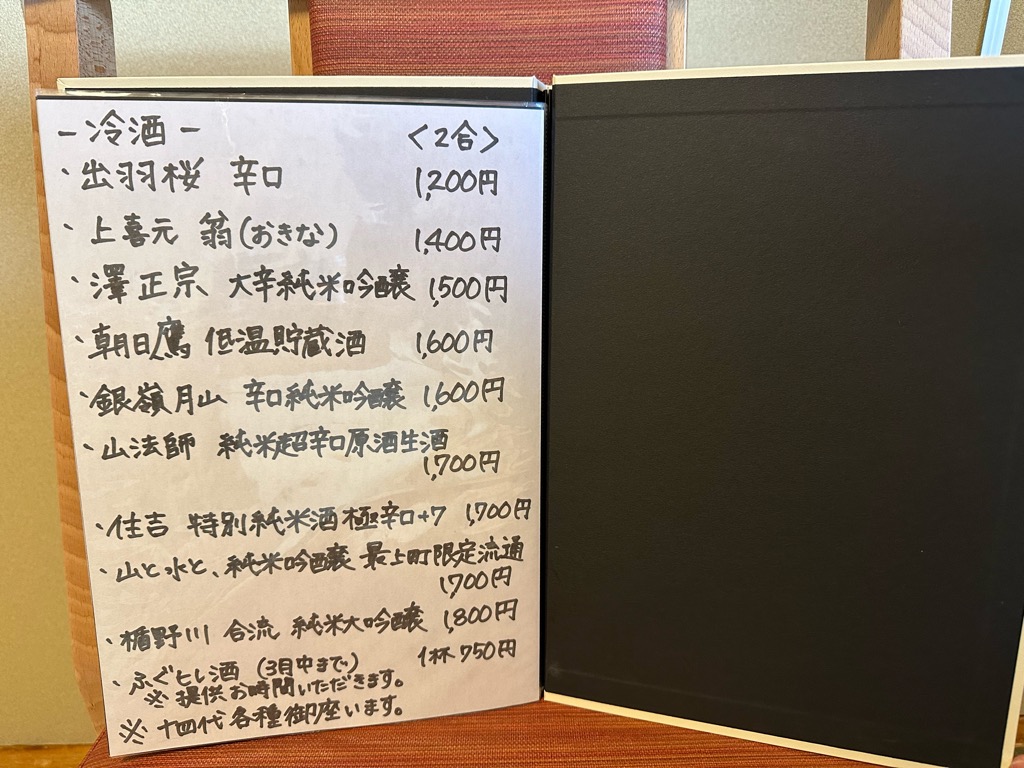 -冷酒- <2合>
・出羽桜 辛口 1,200円
・上喜元 翁(おきな) 1,400円
・澤正宗 大辛純米吟醸 1,500円
・朝日鷹 低温貯蔵酒 1,600円
・銀嶺月山 辛口純米吟醸 1,600円
・山法師 純米超辛口原酒生酒
1,700円
・住吉 特別純米酒 極辛口+7 1,700円
・山と水と、純米吟醸 最上町限定流通
1,700円
・楯野川 合流 純米大吟醸 1,800円
・ふぐひれ酒 (3月中まで) 1杯 750円
※提供お時間いただきます。
※十四代各種御座います。